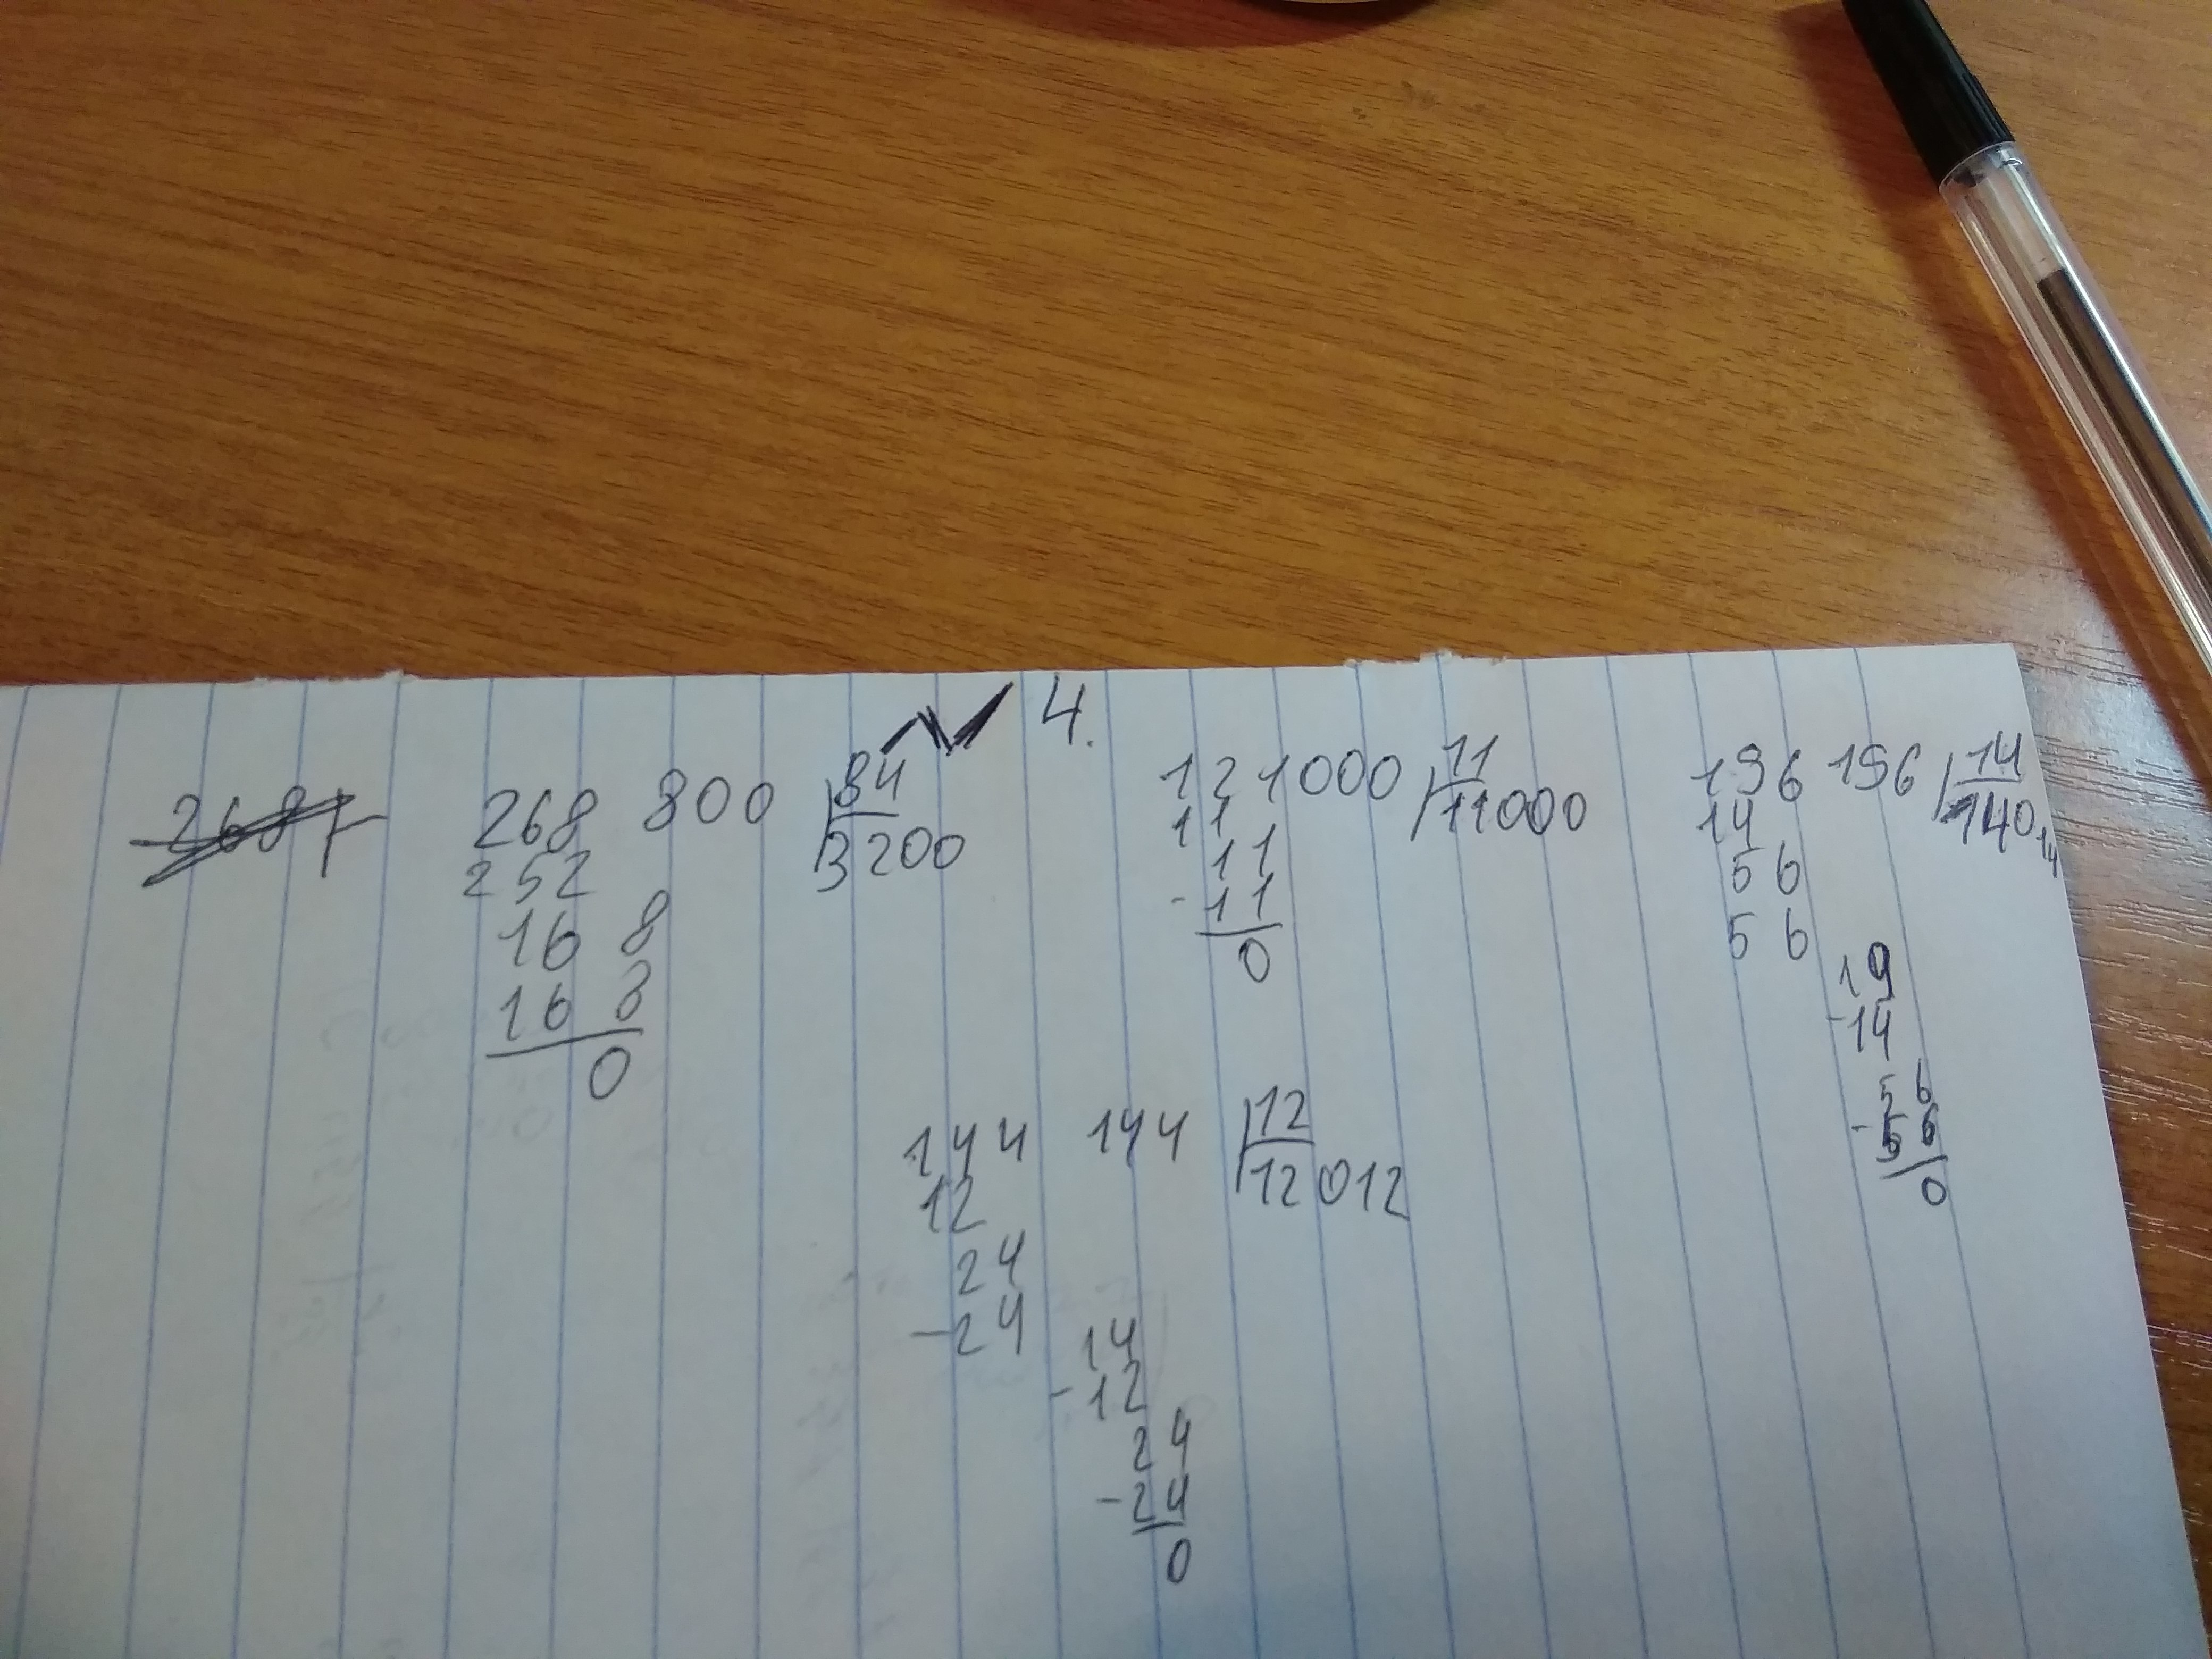 4.
268 800 84
252 3200
16 8
16 8
0
121000 11
11 11000
11
-11
0
196 196 14
14 14014
56
56
19
-14
56
-56
0
144 144 12
12 12012
24
-24
14
-12
24
-24
0